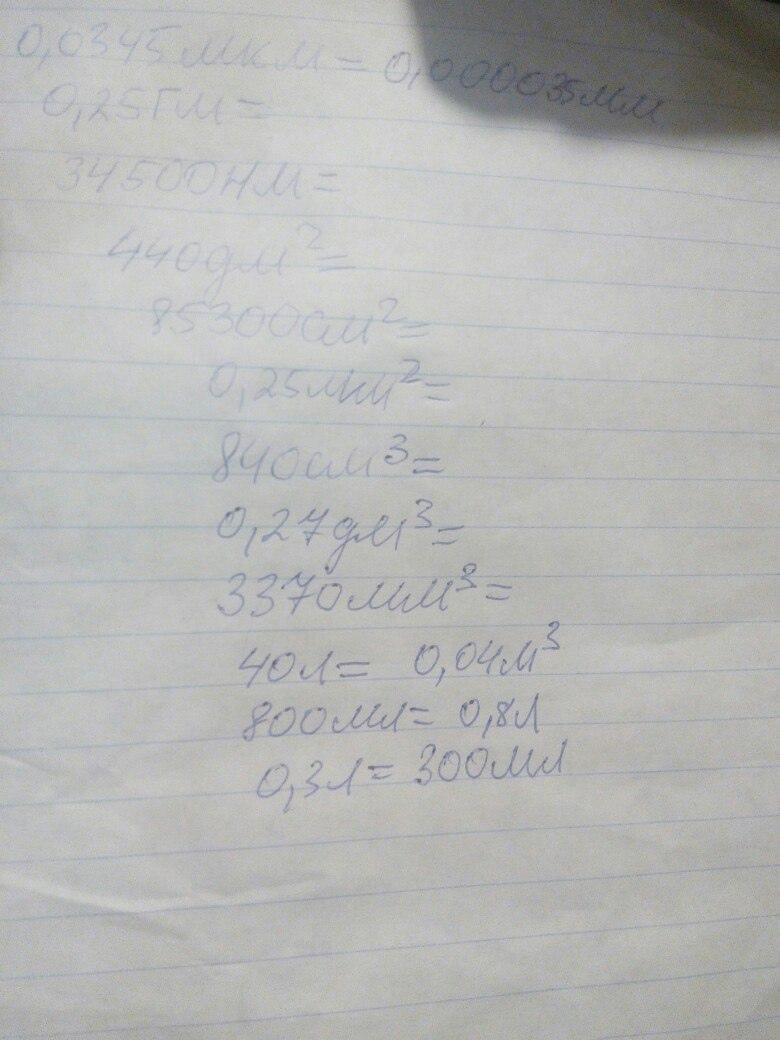 0,0345мкм = 0,000035мм
0,25Гм =
34500нм =
440дм² =
85300см² =
0,25мкм² =
840см³ =
0,27дм³ =
3370мм³ =
40л = 0,04м³
800мл = 0,8л
0,3л = 300мл